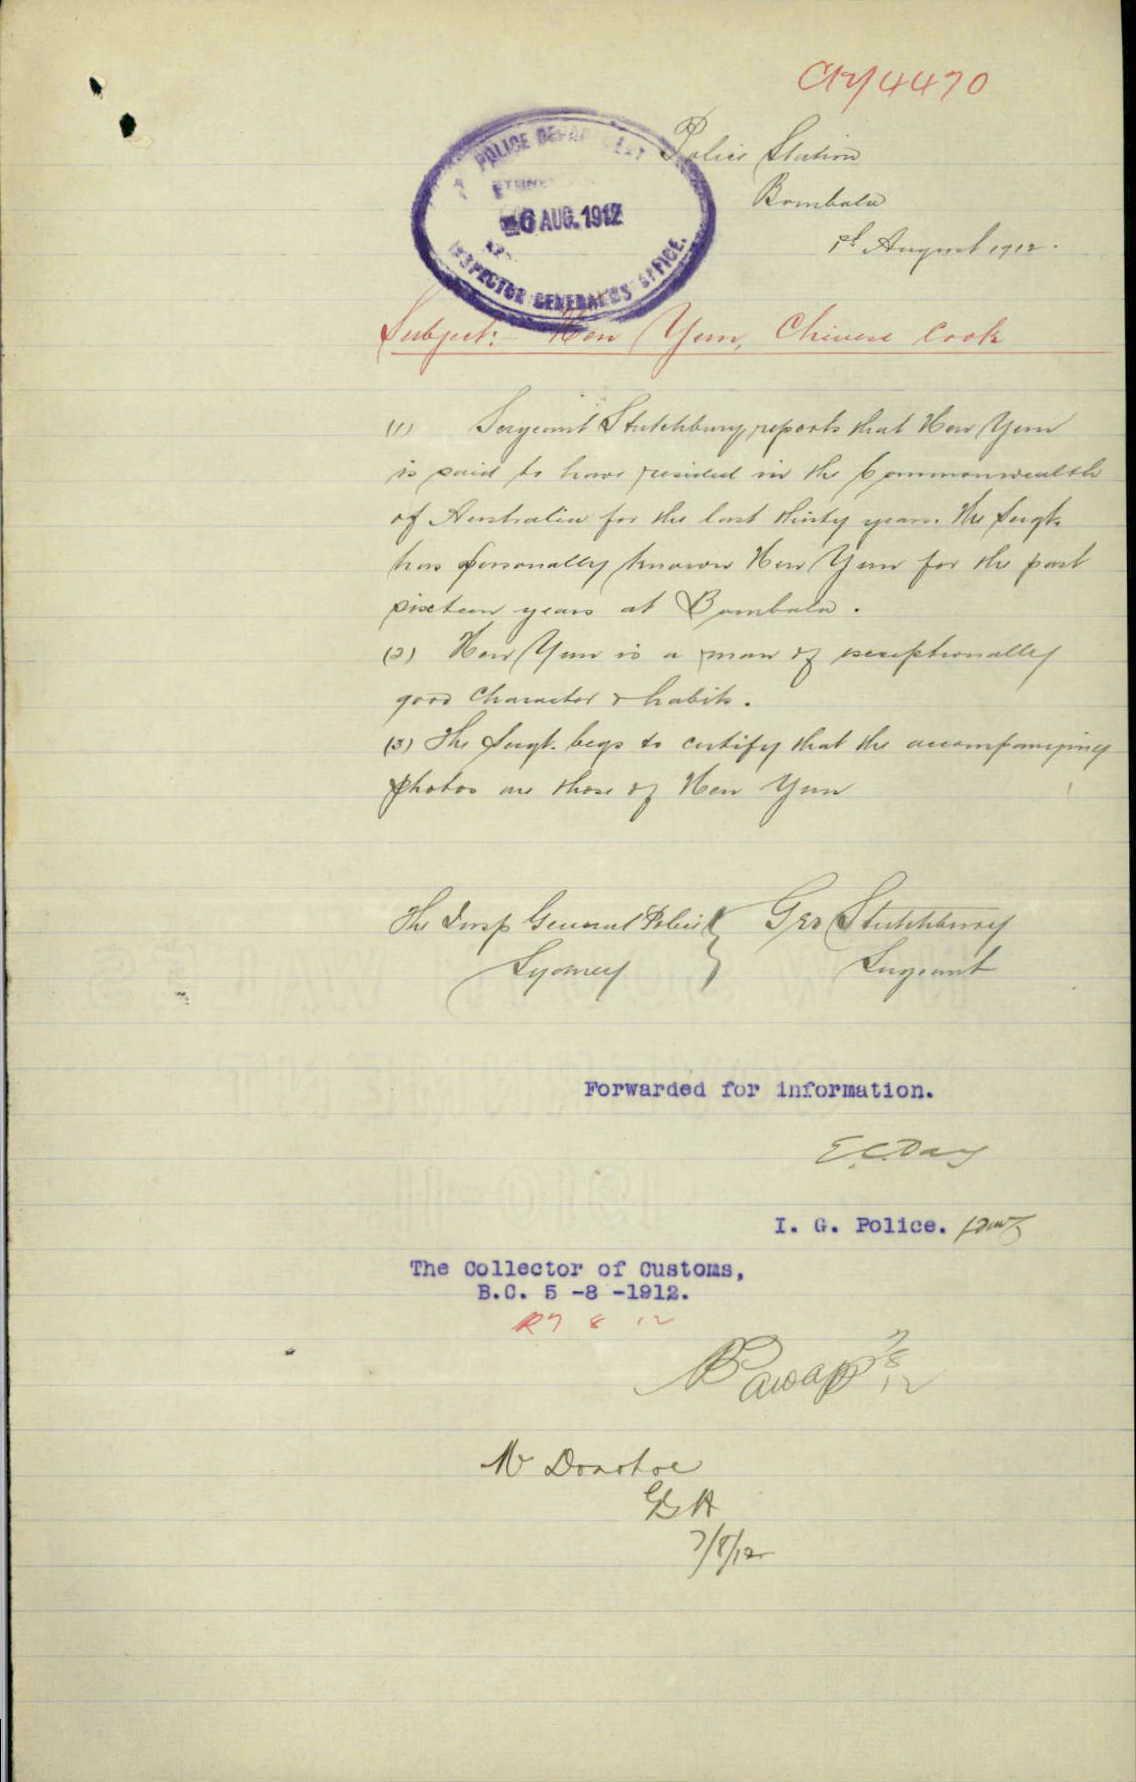 C12/4470
Police Station
Bombala
1st August 1912.
POLICE DEPARTMENT
SYDNEY
6 AUG. 1912
INSPECTOR GENERAL'S OFFICE.
Subject:- Hon Yum, Chinese Cook
(1) Sergeant Stutchbury reports that Hon Yum
is said to have resided in the Commonwealth
of Australia for the last thirty years. The Sergt.
has personally known Hon Yum for the past
sixteen years at Bombala.
(2) Hon Yum is a man of exceptionally
good character & habits.
(3) The Sergt. begs to certify that the accompanying
photos are those of Hon Yum
The Insp General Police } Geo Stutchbury
Sydney Sergeant
Forwarded for information.
E.C. Day
I. G. Police.
The Collector of Customs,
B.C. 5 -8 -1912.
R 7 8 12
7/8/12
Mr Donohoe
7/8/12